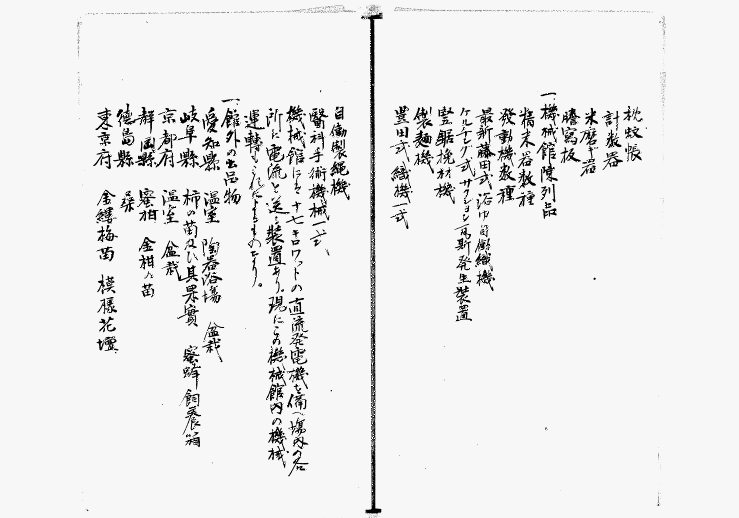 枕蚊帳
計数器
米磨ギ器
謄寫板
一、機械館陳列品
精米器数種
発動機数種
最新藤田式浴巾自働織機
ケルチング式サクション瓦斯発生装置
竪鋸挽材機
製麺機
豊田式織機一式
自働製縄機
醫科手術機械一式
機械館には十七キロワットの直流発電機を備へ場内の各
所に電流を送る装置あり。現にこの機械館内の機械
運轉もこれによるものなり。
一、館外の出品物
愛知縣 温室 陶器浴場 盆栽
岐阜縣 柿の苗及び其果實 蜜蜂飼養箱
京都府 温室 盆栽
静岡縣 蜜柑 金柑の苗
徳島縣 桑
東京府 金縷梅苗 模様花壇